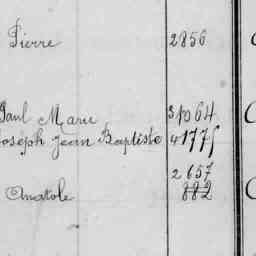 Pierre 2856
Paul Marie 31064
Joseph Jean Baptiste 41775
2657
Anatole 882